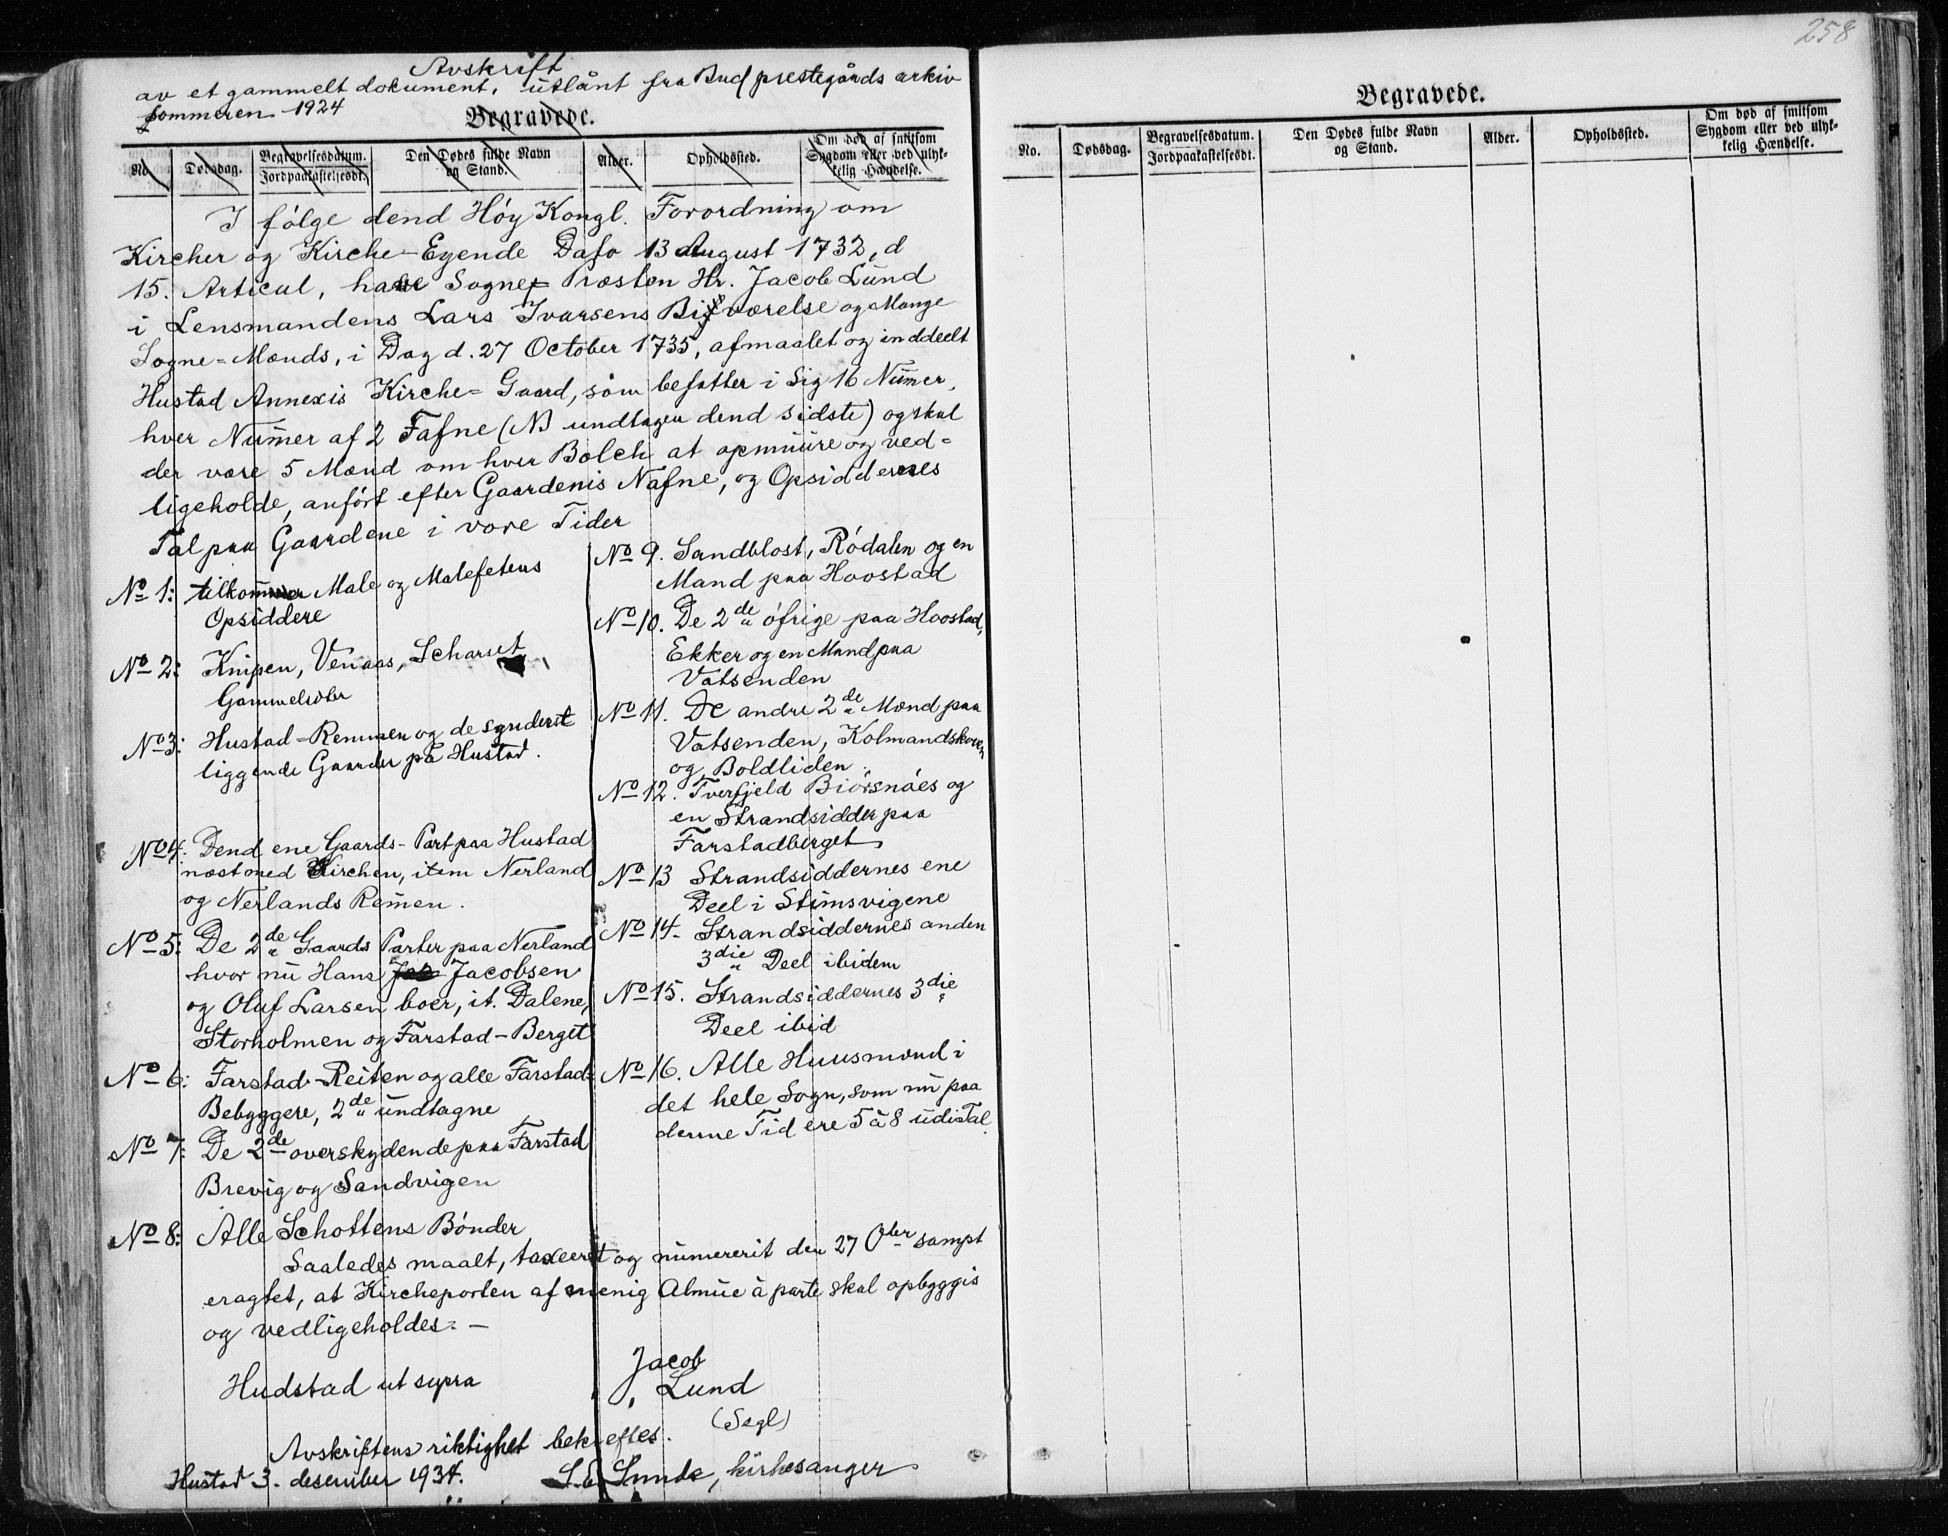 Avskrift
av et gammelt dokument, utlånt fra Bud prestegårds arkiv
sommeren 1924
Begravede.
No. Dødsdag. Begravelsesdatum. Jordpaakastelsesdt. Den Dødes fulde Navn og Stand. Alder. Opholdssted. Om død af smitsom Sygdom eller ved ulykkelig Hændelse.
I følge dend Høy Kongl. Forordning om
Kircher og Kirche-Eyende Dafo 13 August 1732, d
15. Articul, have Sogne- Præsten Hr. Jacob Lund
i Lensmandens Lars Ivarsens Biværelse og Mange
Sogne-Mænds, i Dag d. 27 October 1735, afmaalet og inddeelt
Hustad Annexis Kirche-Gaard, som befatter i sig 16 Numer,
hver Numer af 2 Fafne (NB undtagen dend sidste) og skal
der være 5 Mænd om hver Bolch at opmuure og ved-
ligeholde, anført efter Gaardenis Nafne, og Opsiddernes
Tal paa Gaardene i vore Tider
No 1: tilkommer Male og Malefetens
Opsiddere
No 2: Knipen, Venaas, Scharset
Gammelsæter
No 3: Hustad-Remmen og de synderst
liggende Gaarder på Hustad.
No 4. Dend ene Gaards-Part paa Hustad
næst ned Kirchen, item Nerland
og Nerlands Remen.
No 5: De 2de Gaards Parter paa Nerland
hvor nu Hans Jacobsen
og Oluf Larsen boer, it. Dalene,
Storholmen og Farstad-Berget
No 6: Farstad-Reiten og alle Farstad-
Bebyggere, 2de undtagne
No 7: De 2de overskydende paa Farstad
Brevig og Sandvigen
No 8: Alle Schottens Bønder
No 9. Sandblost, Rødalen og en
Mand paa Hoostad
No 10. De 2de øfrige paa Hoostad,
Ekker og en Mand paa
Vatsenden
No 11. De andre 2de Mænd paa
Vatsenden, Kolmandskoven
og Boldliden
No 12. Tverfjeld Biørsnøes og
en Strandsidder paa
Farstadberget
No 13 Strandsiddernes ene
Deel i Stimsvigene
No 14. Strandsiddernes anden
3die Deel ibidem
No 15. Strandsiddernes 3die
Deel ibid
No 16. Alle Huusmænd i
det hele Sogn, som nu paa
denne Tid ere 5 à 8 udi Tal.
Saaledes maalt, taxeret og numererit den 27 8ber sampt
eragtet, at Kircheporten af menig Almue à parte skal opbyggis
og vedligeholdes. -
Hudstad ut supra
Jacob
Lund
(Segl)
Avskriftens riktighet bekreftes.
Hustad 3. desember 1934. S. E. Lunde, kirkesanger
258
Begravede.
No. Dødsdag. Begravelsesdatum. Jordpaakastelsesdt. Den Dødes fulde Navn og Stand. Alder. Opholdssted. Om død af smitsom Sygdom eller ved ulykkelig Hændelse.